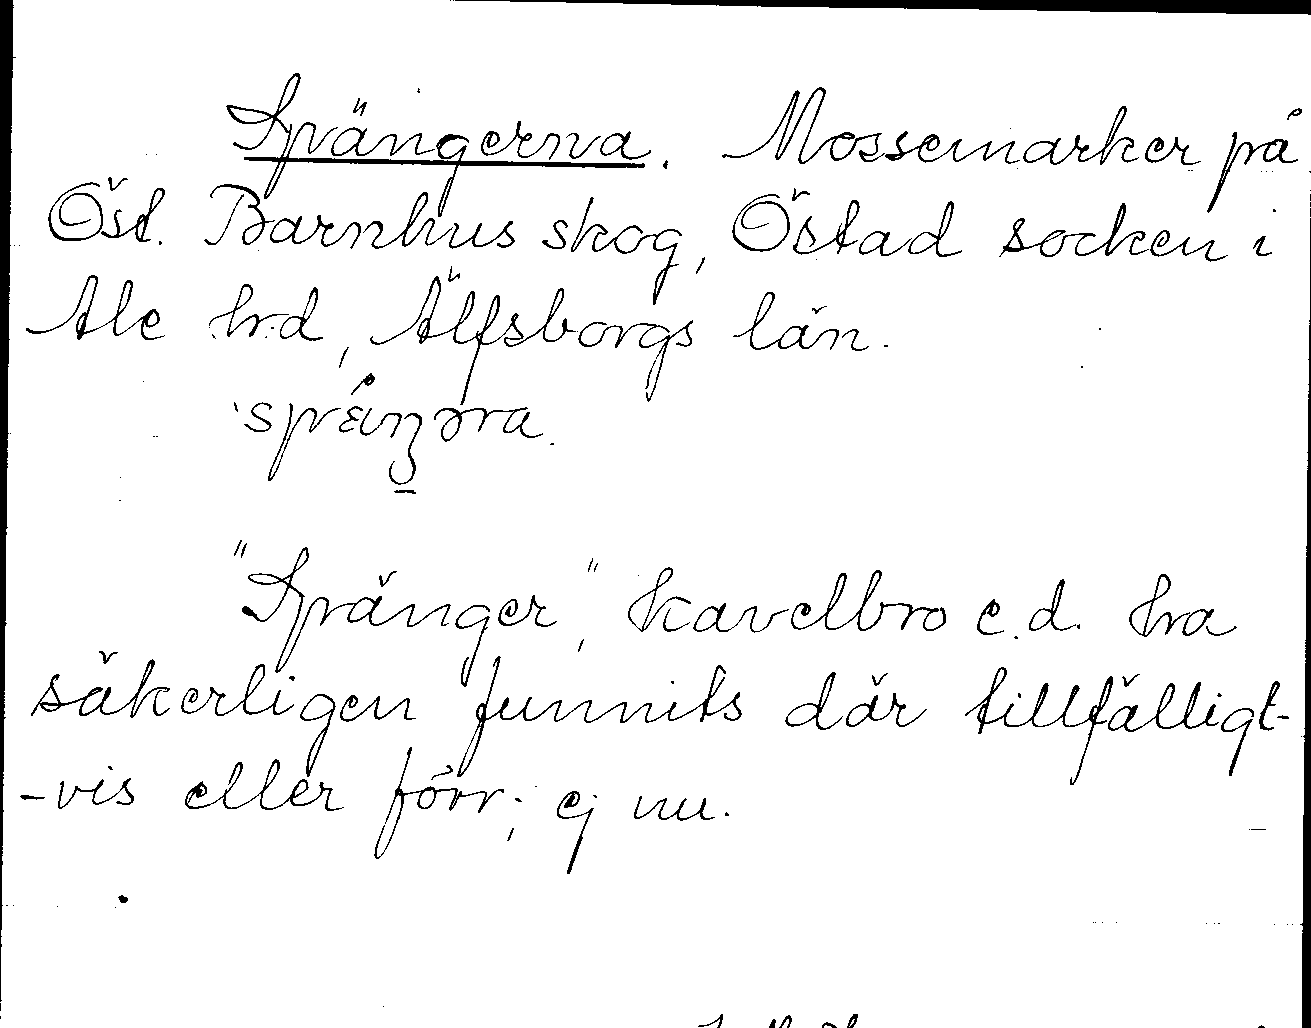 Spängerna. Mossemarker på
Öst. Barnhus skog, Östad socken i
Ale hrd, Älfsborgs län.

"Spänger", kavelbro e.d. ha
säkerligen funnits där tillfälligt-
-vis eller förr; ej nu.